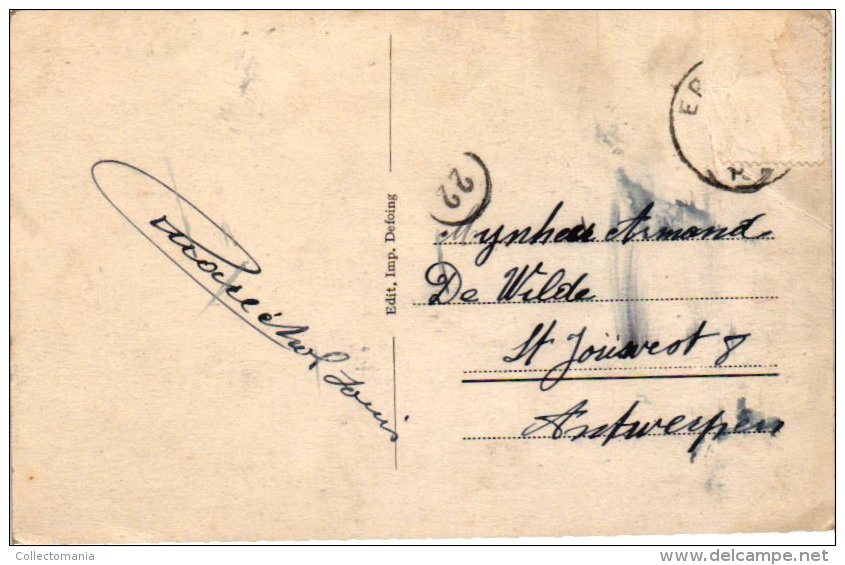 22
Edit, Imp. Defoing
Mynheer Armond
De Wilde
St Joüsvest 8
Antwerpen
Maréchal Louis
Collectomania
www.delcampe.net